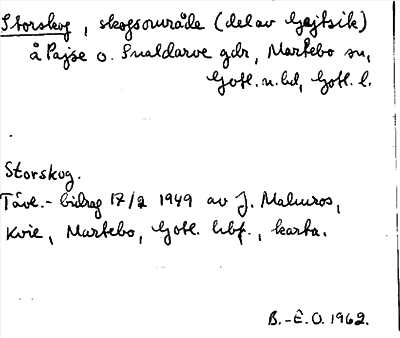 Storskog, skogsområde (del av Gajtsik)
å Pajse o. Snaldarve gdr, Martebo sn,
Gotl. n. hd, Gotl. l.
Storskog.
Tävl.-bidrag 17/2 1949 av J. Malmros,
Kvie, Martebo, Gotl. hbf., karta.
B.-E.O. 1962.